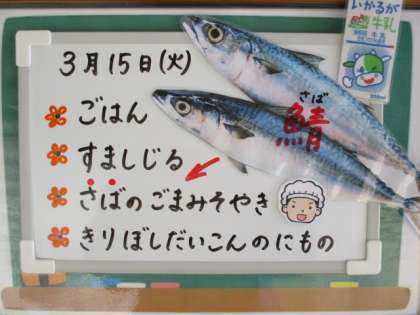 いかるが
牛乳
3月15日(火)
ごはん
すましじる
さばのごまみそやき
きりぼしだいこんのにもの
さば
鯖